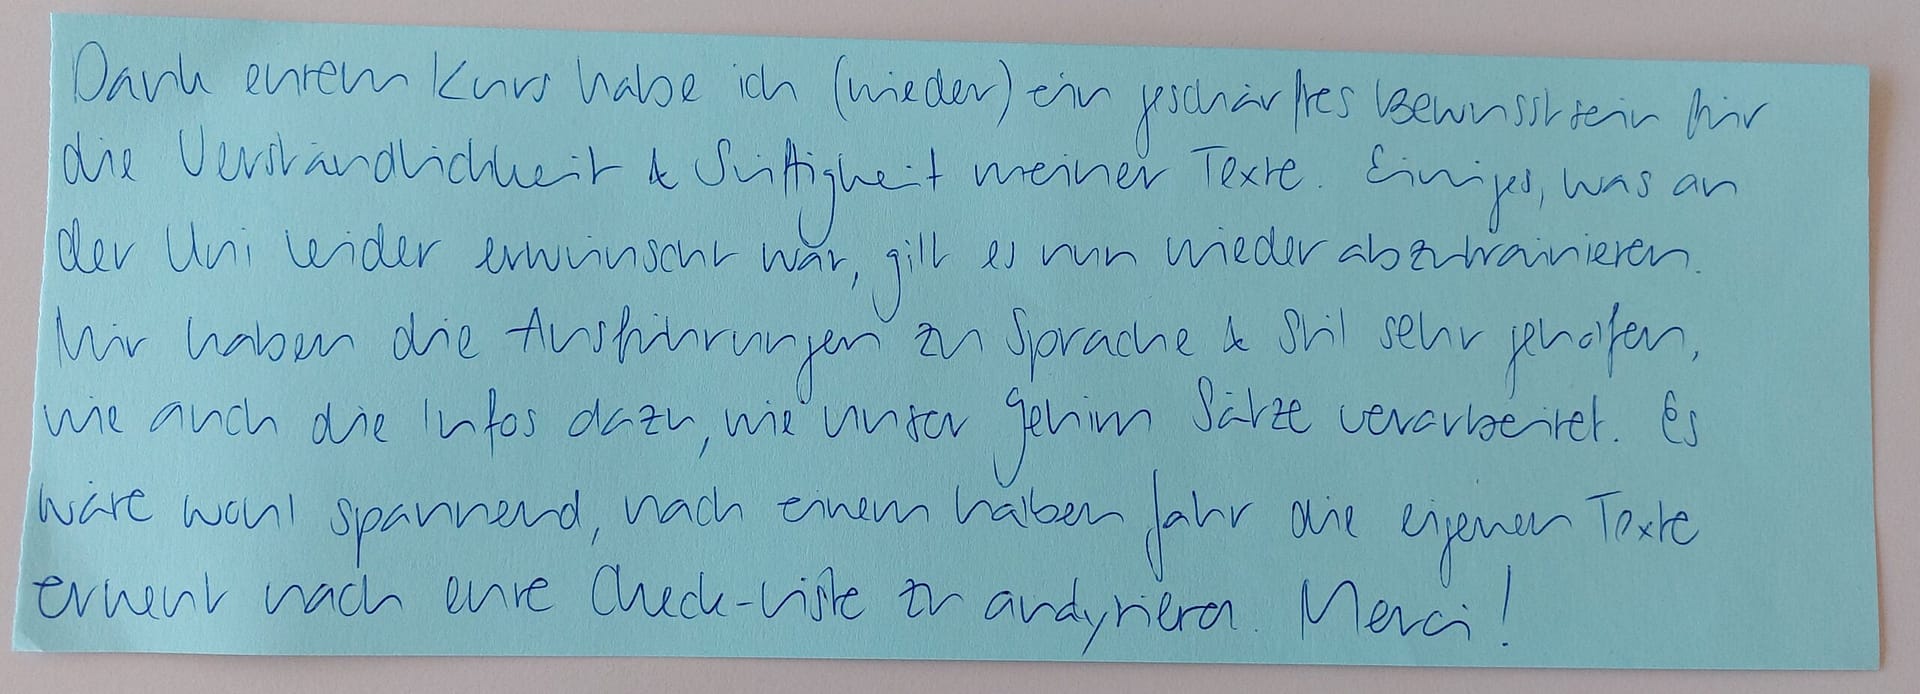 Dank eurem Kurs habe ich (wieder) ein geschärftes Bewusstsein für
die Verständlichkeit & Süffigkeit meiner Texte. Einiges, was an
der Uni leider erwünscht war, gilt es nun wieder abzutrainieren.
Mir haben die Ausführungen zu Sprache & Stil sehr geholfen,
wie auch die Infos dazu, wie unser Gehirn Sätze verarbeitet. Es
wäre wohl spannend, nach einem halben Jahr die eigenen Texte
erneut nach eure Check-Liste zu analysieren. Merci!